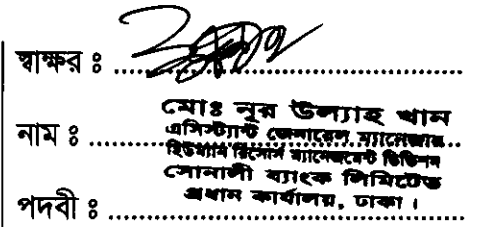 স্বাক্ষর ঃ
মোঃ নূর উল্যাহ খান
নাম ঃ এসিস্ট্যান্ট জেনারেল ম্যানেজার
হিউম্যান রিসোর্স ম্যানেজমেন্ট ডিভিশন
সোনালী ব্যাংক লিমিটেড
পদবী ঃ প্রধান কার্যালয়, ঢাকা ।